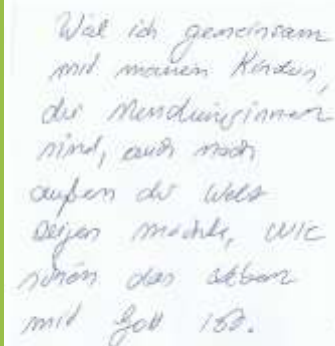 Weil ich gemeinsam
mit meinen Kindern,
die Ministrantinnen
sind, auch nach
außen der Welt
zeigen möchte, wie
schön das Leben
mit Gott ist.